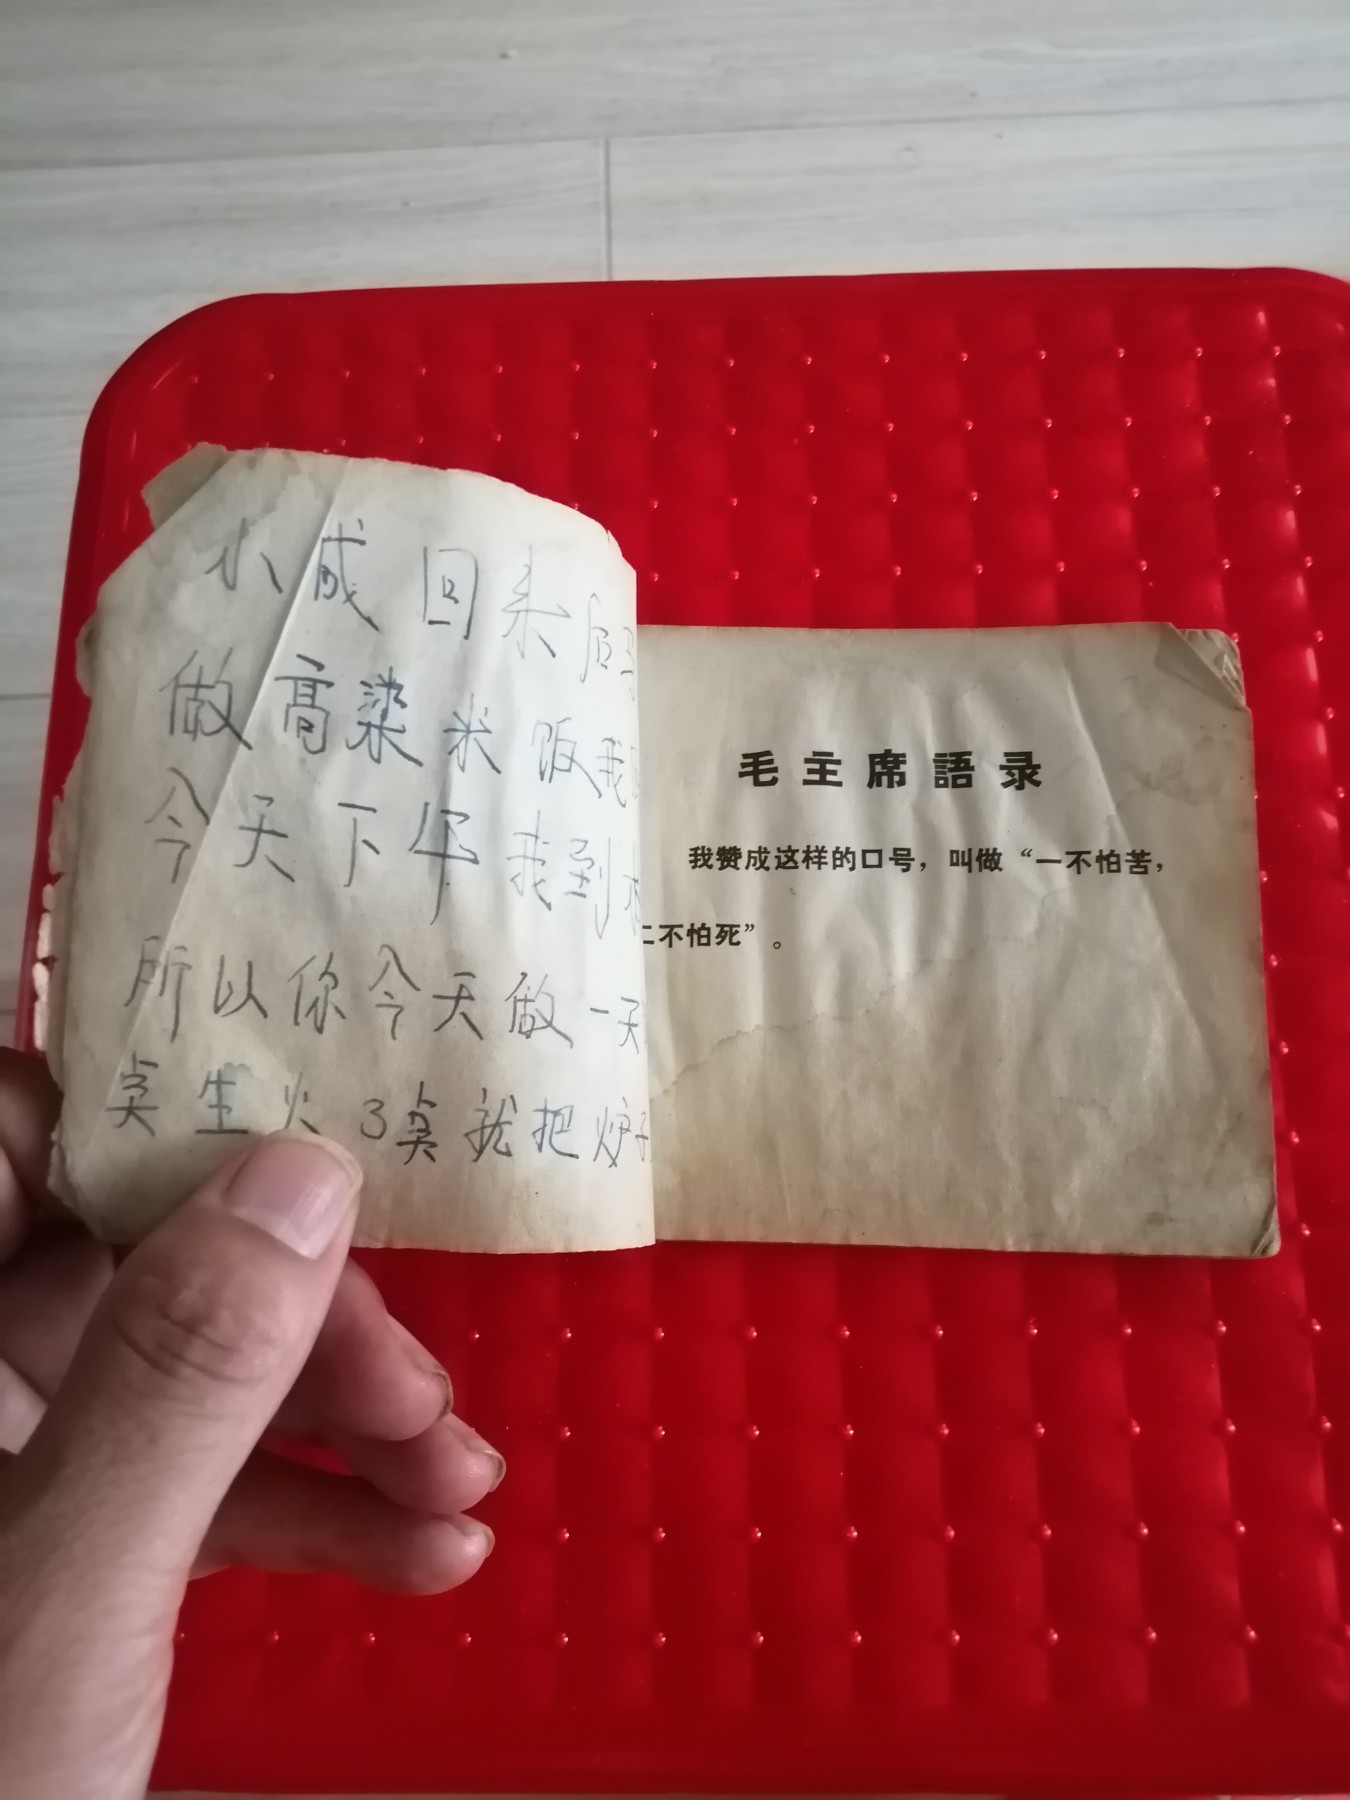 小成回来后
做高梁米饭我
今天下午我到
所以你今天做一天
点生火3点就把炉子
毛主席語录
我赞成这样的口号，叫做“一不怕苦，
二不怕死”。